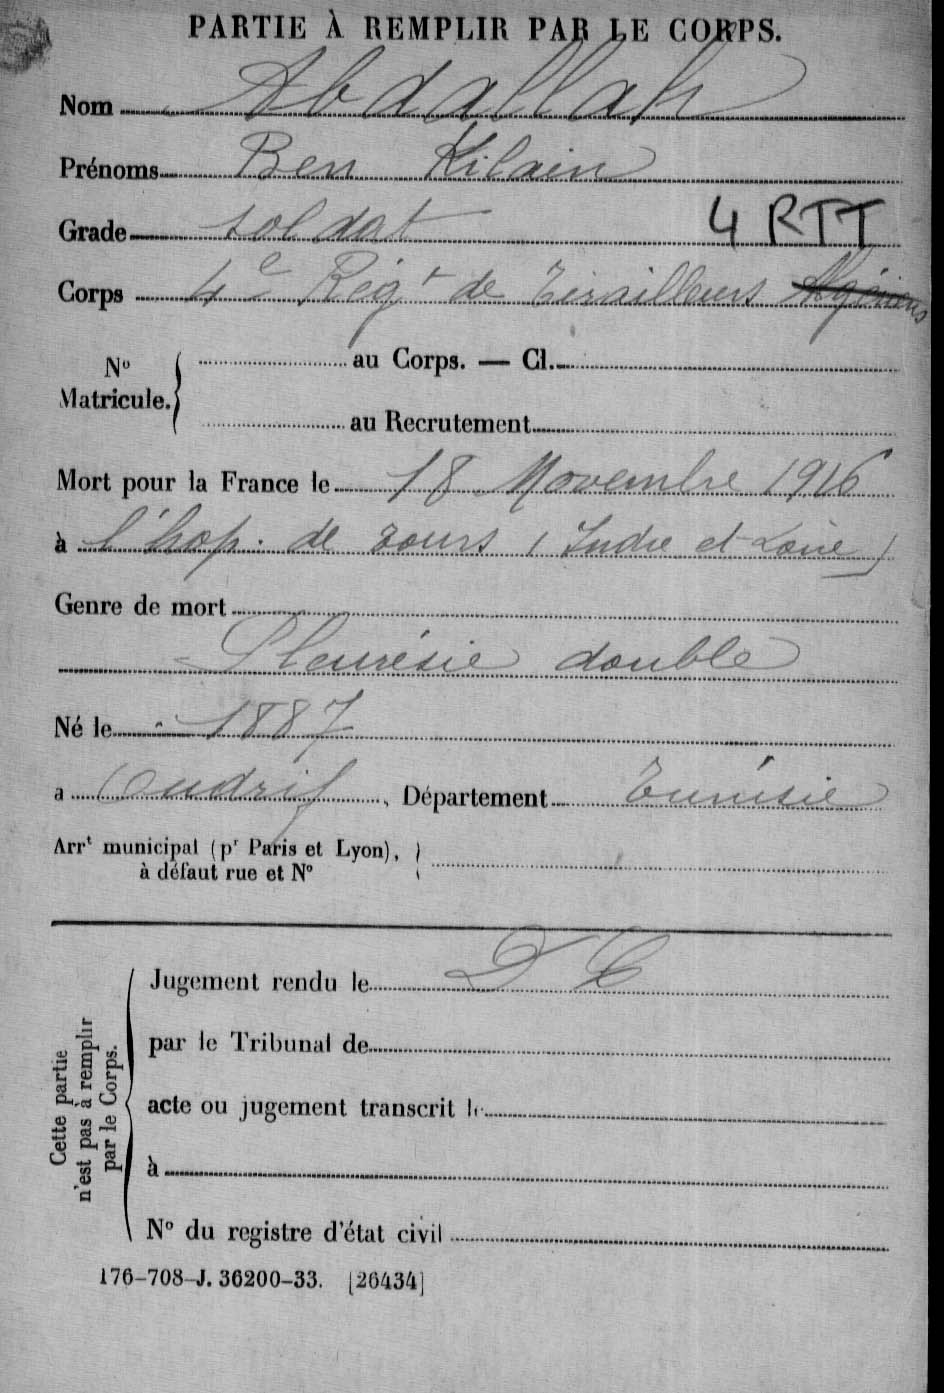 PARTIE À REMPLIR PAR LE CORPS.
Nom Abdallah
Prénoms Ben Kilain
Grade soldat 4 RTT
Corps 4e Régt de Tirailleurs Algériens
No Matricule. au Corps. — Cl.
au Recrutement
Mort pour la France le 18 Novembre 1916
à l'hop. de Tours (Indre et Loire)
Genre de mort
Pleurésie double
Né le - 1887
a Oudrif, Département Tunisie
Arrt municipal (pr Paris et Lyon),
à défaut rue et No
Jugement rendu le D C
par le Tribunal de
acte ou jugement transcrit le
à
No du registre d'état civil
Cette partie
n'est pas à remplir
par le Corps.
176-708-J. 36200-33. [26434]